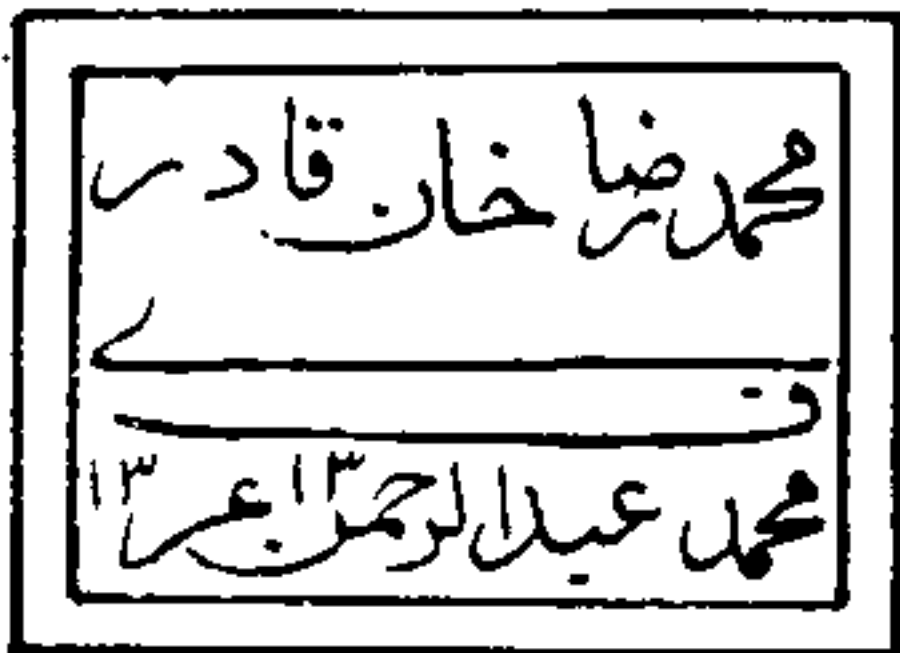 محمد رضا خان قادر
ے
ف
محمد عبد الرحمن ۱۳ عر ۱۳